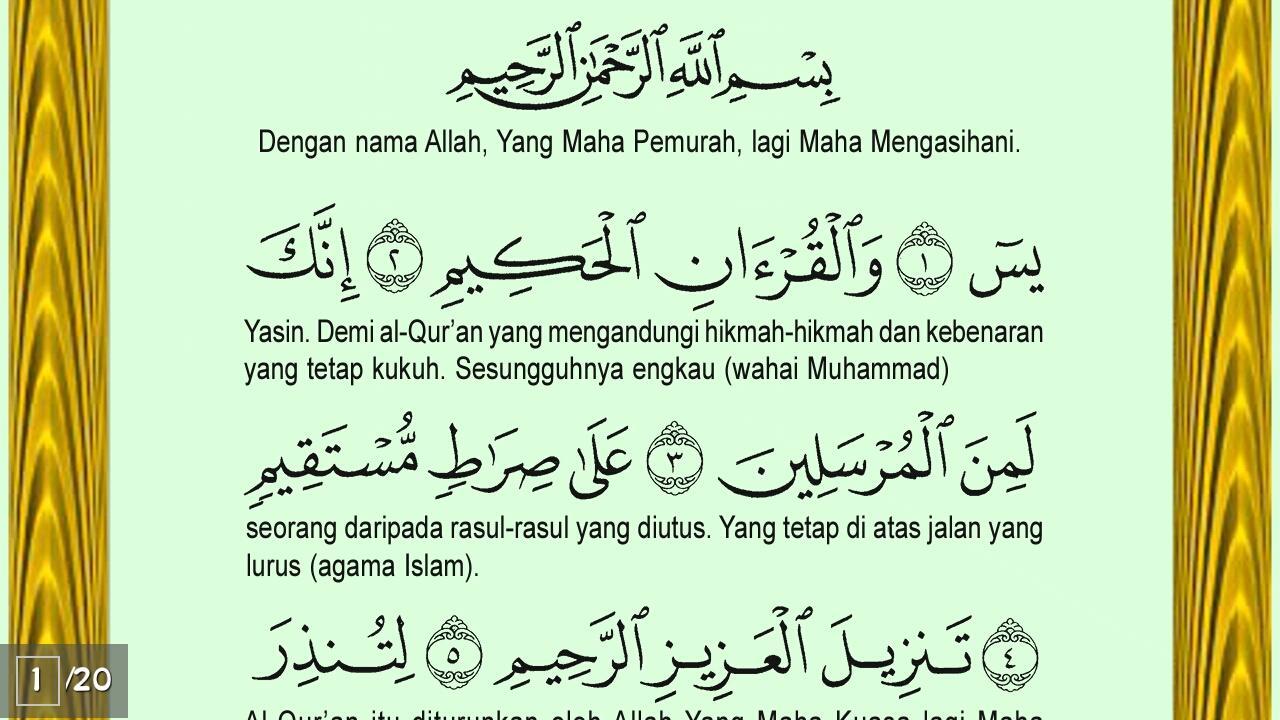 بِسْمِ ٱللَّهِ ٱلرَّحْمَٰنِ ٱلرَّحِيمِ
Dengan nama Allah, Yang Maha Pemurah, lagi Maha Mengasihani.
يسٓ ١ وَٱلْقُرْءَانِ ٱلْحَكِيمِ ٢ إِنَّكَ
Yasin. Demi al-Qur’an yang mengandungi hikmah-hikmah dan kebenaran
yang tetap kukuh. Sesungguhnya engkau (wahai Muhammad)
لَمِنَ ٱلْمُرْسَلِينَ ٣ عَلَىٰ صِرَٰطٍ مُّسْتَقِيمٍ
seorang daripada rasul-rasul yang diutus. Yang tetap di atas jalan yang
lurus (agama Islam).
٤ تَنزِيلَ ٱلْعَزِيزِ ٱلرَّحِيمِ ٥ لِتُنذِرَ
Al-Qur’an itu diturunkan oleh Allah Yang Maha Kuasa lagi Maha
1/20